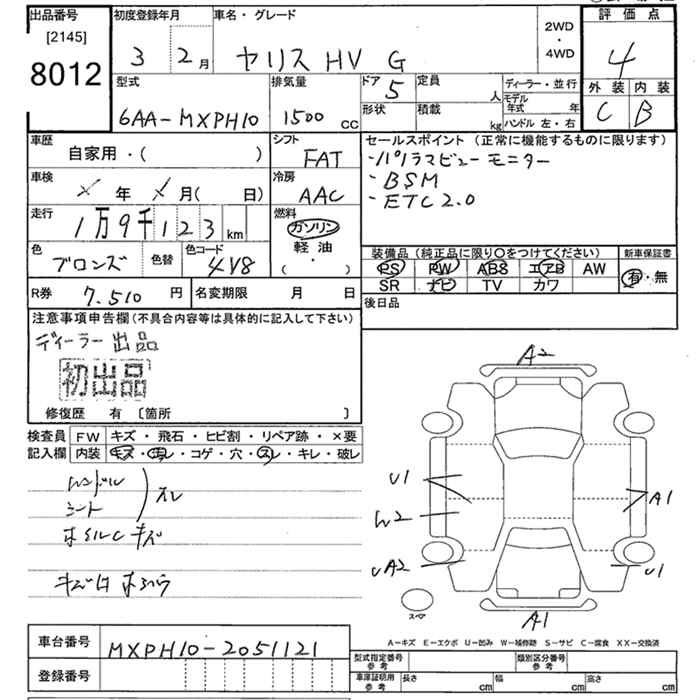 出品番号 初度登録年月 車名・グレード 2WD・4WD 評価点
[2145]
8012 3 2月 ヤリス HV G 4
型式 排気量 ドア 定員 ディーラー・並行 外装 内装
6AA-MXPH10 1500cc 5 人 モデル年式 年 C B
形状 積載 kg ハンドル 左・右
車歴 シフト セールスポイント(正常に機能するものに限ります)
自家用・( ) FAT ・パノラマビューモニター
車検 冷房 ・BSM
年 月( 日) AAC ・ETC2.0
走行 燃料
1万9千123km ガソリン
軽油
( ・ )
色 色替 色コード 装備品(純正品に限り○をつけてください) 新車保証書
ブロンズ 4V8 PS PW ABS エアB AW 有・無
SR ナビ TV カワ
R券 7.510円 名変期限 月 日 後日品
注意事項申告欄(不具合内容等は具体的に記入して下さい)
ディーラー出品
初出品
修復歴 有 [箇所 ]
検査員 FW キズ・飛石・ヒビ割・リペア跡・×要
記入欄 内装 キズ・汚レ・コゲ・穴・スレ・キレ・破レ
ハンドル
シート スレ
ホイルC キズ
A2
U1
W2
A1
UA2
U1
スペア
A1
A-キズ E-エクボ U-凹み W-補修跡 S-サビ C-腐食 XX-交換済
車台番号 MXPH10-2051121
型式指定番号 参考 類別区分番号 参考
登録番号 車庫証明用 参考 長さ cm 幅 cm 高さ cm